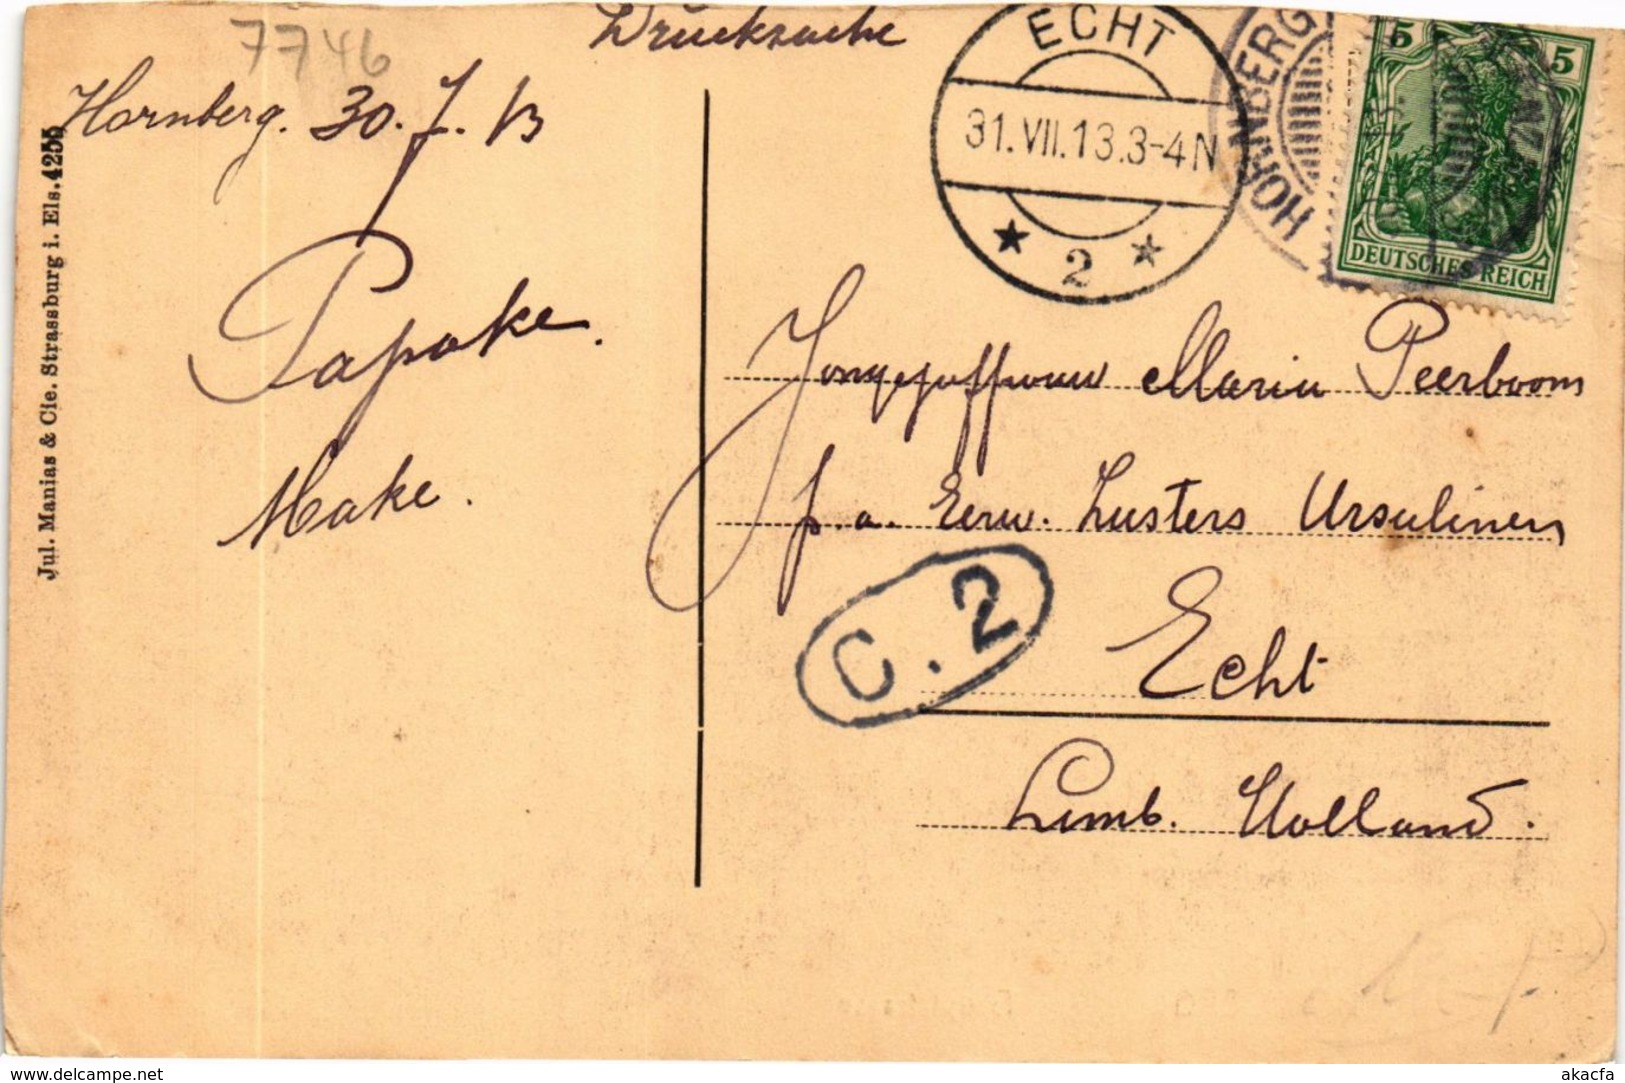 7746
Drucksache
Hornberg. 30.7.13
Papake.
Make.
Jul. Manias & Cie. Strassburg i. Els. 4255
ECHT
31.VII.13.3-4N
★ 2 ★
HORNBERG
5 5
DEUTSCHES REICH
Jongejuffrouw Maria Peerboom
p.a. Eerw. Zusters Ursulinen
C.2
Echt
Limb. Holland.
www.delcampe.net
akacfa